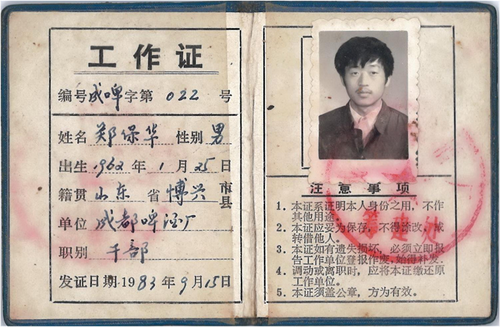 工作证
编号成啤字第 022 号
姓名 郑保华 性别 男
出生 1962 年 1 月 25 日
籍贯 山东 省 博兴 市县
单位 成都啤酒厂
职别 干部
发证日期 1983 年 9 月 15 日
注意事项
1. 本证系证明本人身份之用,不作
其他用途。
2. 本证应妥为保存,不得涂改、或
转借他人。
3. 本证如有遗失损坏,必须立即报
告工作单位登报作废,始得补发。
4. 调动或离职时,应将本证缴还原
工作单位。
5. 本证须盖公章,方为有效。